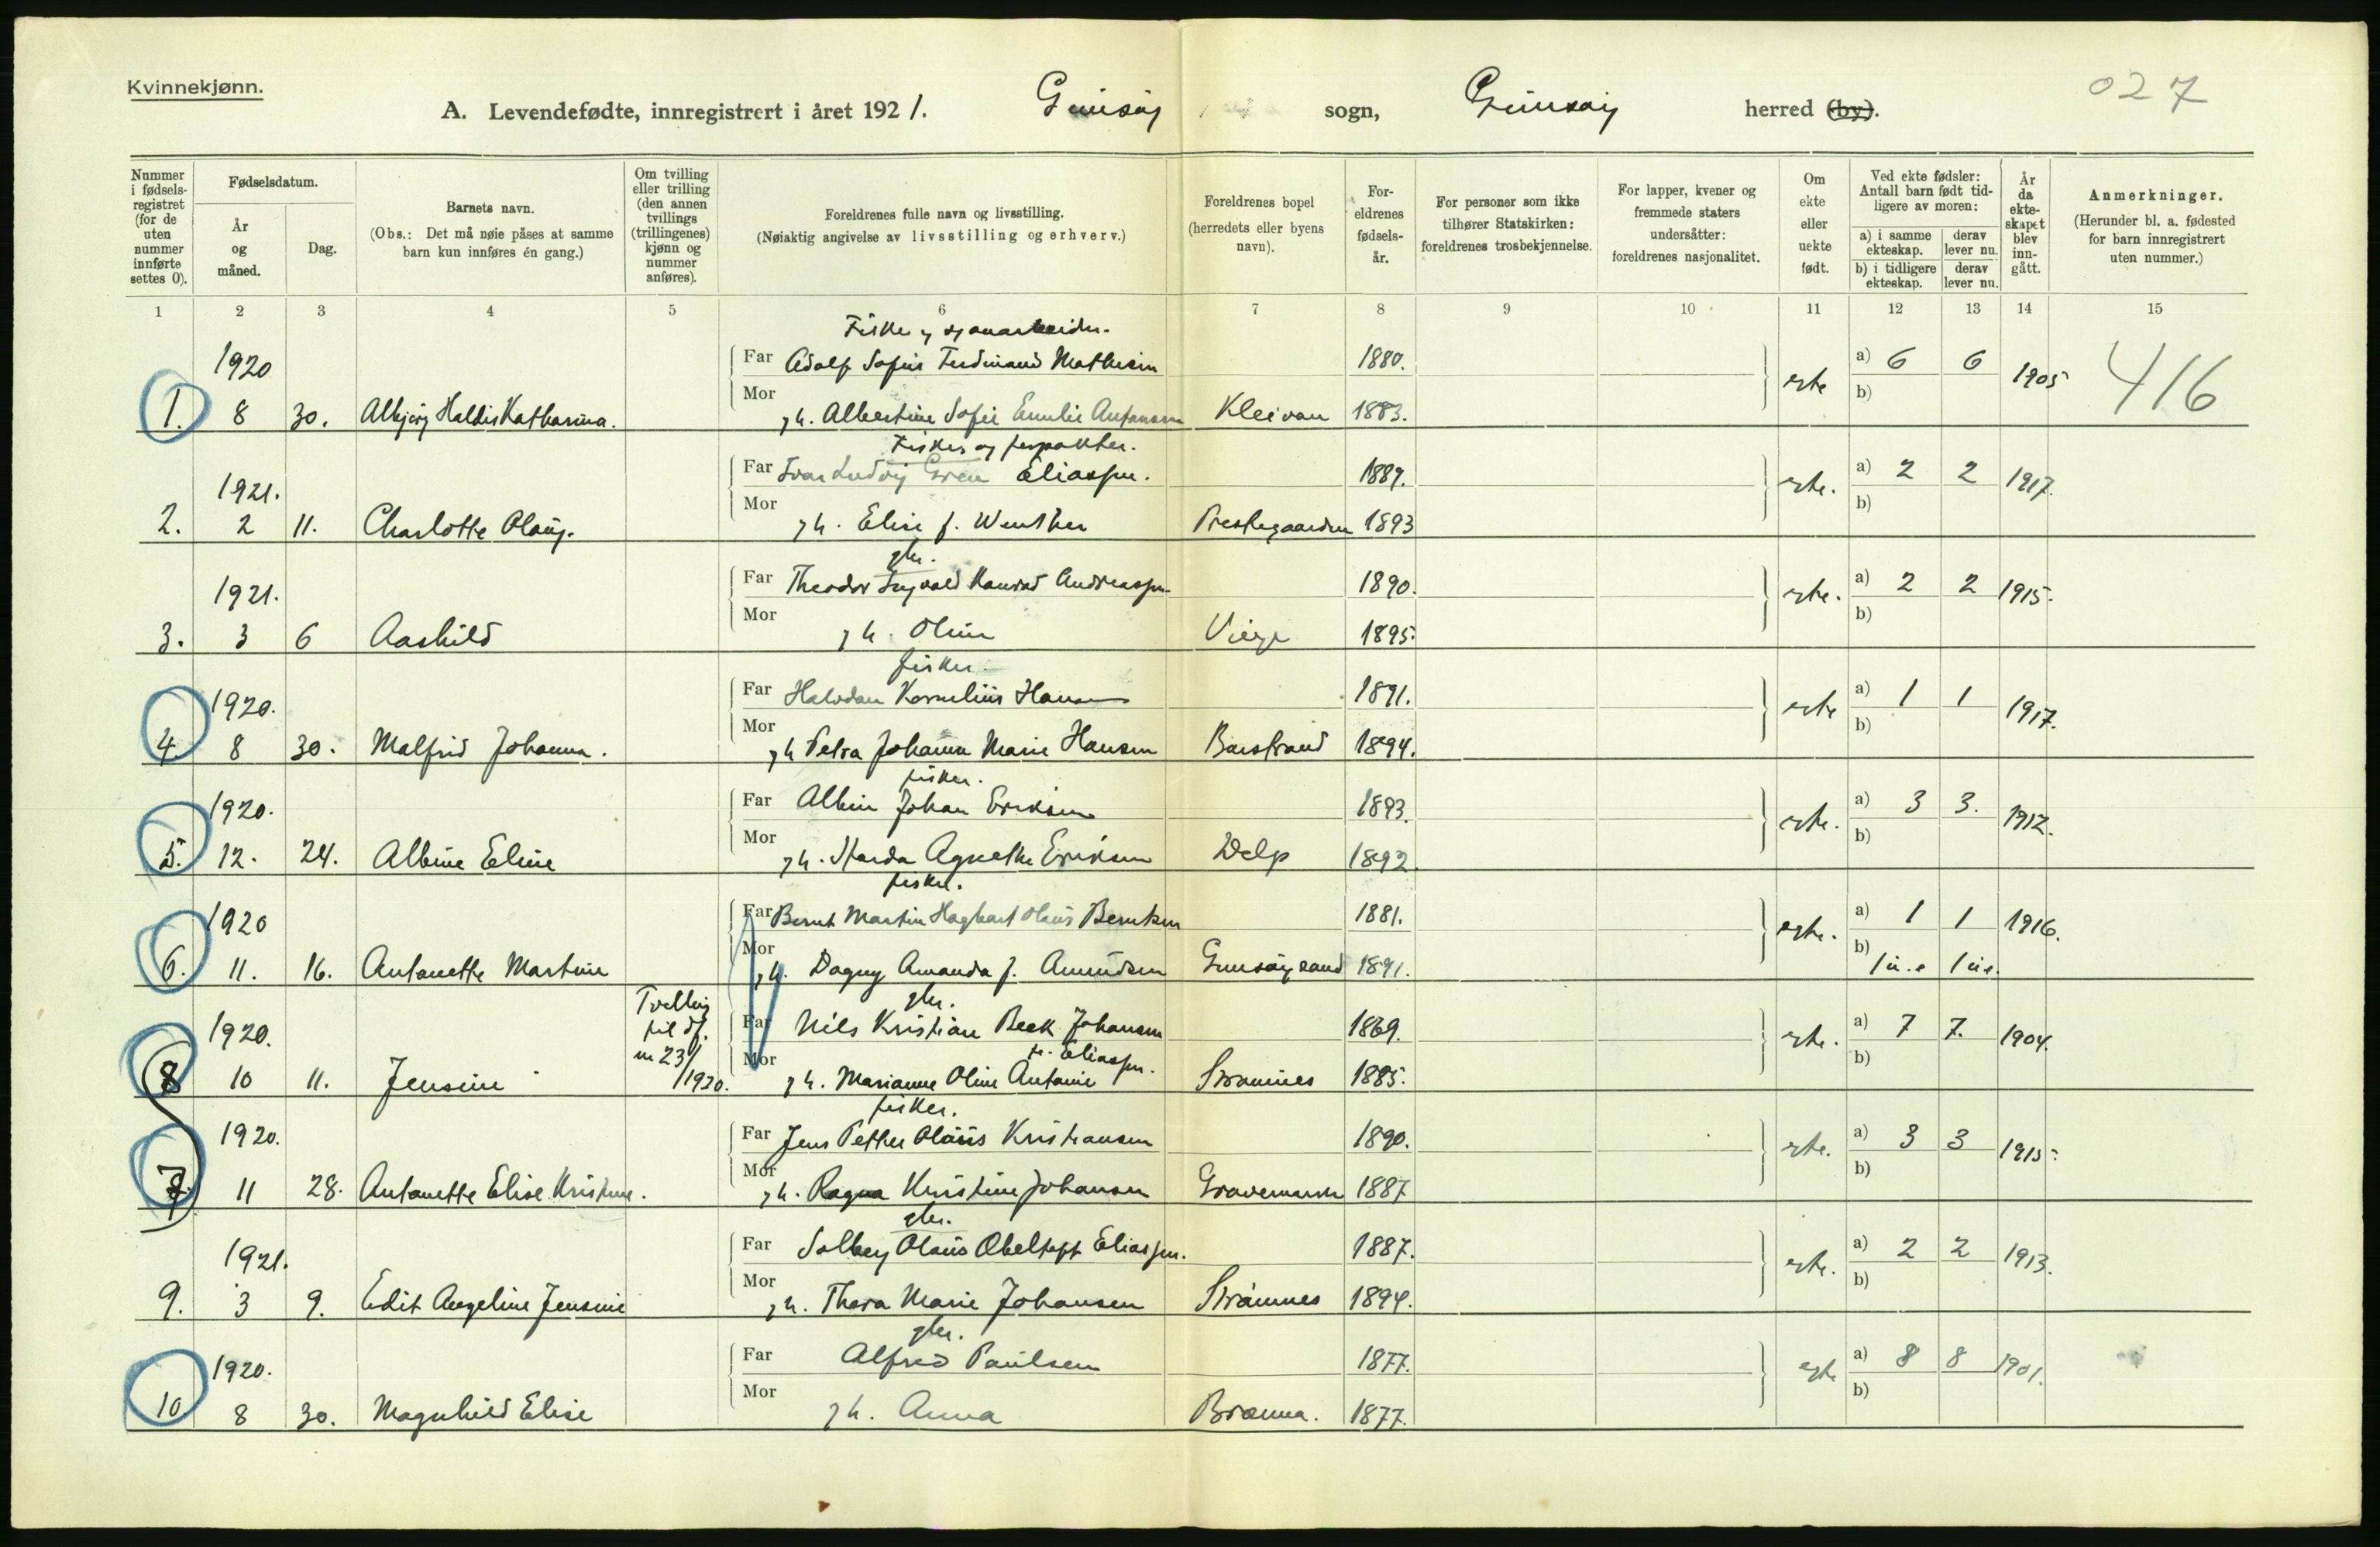 Kvinnekjønn.
A. Levendefødte, innregistrert i året 1921. Gimsøy sogn, Gimsøy herred (by). 027
Nummer i fødsels-registret (for de uten nummer innførte settes 0).
Fødselsdatum.
År og måned.
Dag.
Barnets navn.
(Obs.: Det må nøie påses at samme barn kun innføres én gang.)
Om tvilling eller trilling (den annen tvillings (trillingenes) kjønn og nummer anføres).
Foreldrenes fulle navn og livsstilling.
(Nøiaktig angivelse av livsstilling og erhverv.)
Foreldrenes bopel (herredets eller byens navn).
For-eldrenes fødsels-år.
For personer som ikke tilhører Statskirken: foreldrenes trosbekjennelse.
For lapper, kvener og fremmede staters undersåtter: foreldrenes nasjonalitet.
Om ekte eller uekte født.
Ved ekte fødsler: Antall barn født tid-ligere av moren:
a) i samme ekteskap. derav lever nu.
b) i tidligere ekteskap. derav lever nu.
År da ekte-skapet blev inn-gått.
Anmerkninger.
(Herunder bl. a. fødested for barn innregistrert uten nummer.)
1 2 3 4 5 6 7 8 9 10 11 12 13 14 15
Fisker
1920 Far Adolf Sofus Ferdinand Mathisen 1880. a) 6 6 1905 416
Mor b)
1. 8 30. Haldis Katharina. Albertine Sofie Emilie Antonsen Kleivan 1883.
Fisker og
1921. Far Ludvig Eliassen. 1889. a) 2 2 1917.
Mor b)
2. 2 11. Charlotte Olaug. Elise f. Winther Prestegaarden 1893
1921. Far Theodor Ingvald Konrad Andreassen 1890. a) 2 2 1915.
Mor b)
3. 3 6 Aashild Oline 1895.
fisker.
1920. Far Halvdan Kornelius Hansen 1891. a) 1 1 1917.
Mor b)
4. 8 30. Malfrid Johanna. Petra Johanna Marie Hansen Barstrand 1894.
fisker.
1920. Far Albin Johan Eriksen 1893. a) 3 3. 1912.
Mor b)
5. 12. 24. Albine Eline Agnethe Eriksen 1892.
fisker.
1920 Far Bernt Martin Hagbart Olaus Berntsen 1881. a) 1 1 1916.
Mor b) 1 u.e 1 u.e.
6. 11. 16. Antonette Martine Dagny Amanda f. Amundsen Gimsøysand 1891.
Tvilling
1920. til gf. Far Nils Kristian Beck Johansen 1869. a) 7 7. 1904.
nr 23/1920. Mor f. Eliassen. b)
8 10 11. Jensine Marianne Oline Antonie Strømnes 1885.
fisker.
1920. Far Jens Petter Olaus Kristiansen 1890. a) 3 3 1915.
Mor b)
7. 11 28. Antonette Elise Kristine. Ragna Kristine Johansen Gravermark 1887
1921. Far Solberg Olaus Eliassen. 1887. a) 2 2 1913.
Mor b)
9. 3 9. Edit Angeline Jensine Thora Marie Johansen Strømnes 1894.
1920. Far Alfred Paulsen 1877. a) 8 8 1901.
Mor b)
10 8 30. Magnhild Elise Anna Brenna. 1877.